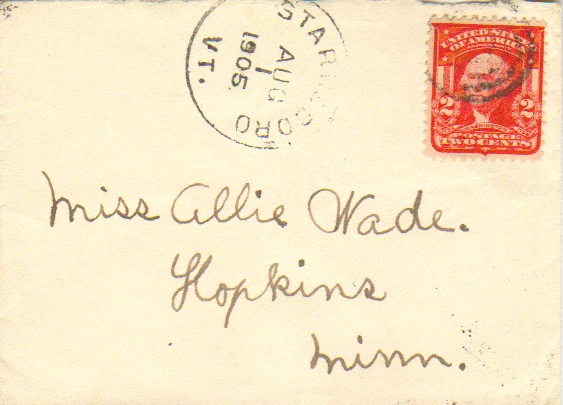 STARKSBORO
AUG
1
1905
VT.
UNITED STATES
OF AMERICA
2 2
POSTAGE
TWO CENTS
Miss Allie Wade.
Hopkins
Minn.